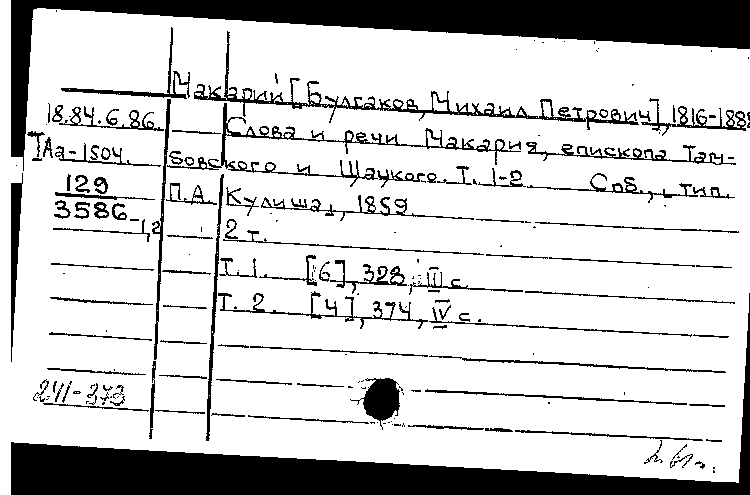 Макарий [Булгаков, Михаил Петрович], 1816-188
18.84.6.86. Слова и речи Макария, епископа Там-
IАа-1504. бовского и Шацкого. Т. 1-2. Спб., тип.
129 П.А. Кулиша, 1859.
3586-1,2
2 т.
Т. 1. [6], 328, II с.
Т. 2. [4], 374, IV с.
241-373